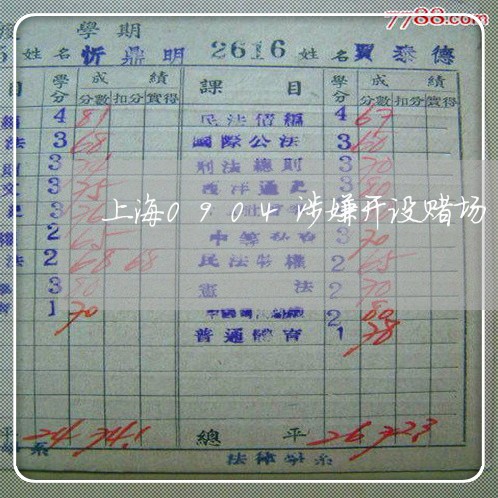 7788.com
學期
姓名 忻鼎明 2616 姓名 賈泰德
目 學分 成績 課目 學分 成績
分數 扣分 實得 分數 扣分 實得
4 81 民法債編 4 67
法 3 68 國際公法 3 60
3 刑法總則 3 70
3 75 西洋通史 3 80
上海0904涉嫌开设赌场
2 65 3 70
法 2 68 68 民法物權 2 65
3 80 憲法 2 70
1 70 2 80
普通體育 1 78
24 74.1 總平 26 72.3
系 法律學系